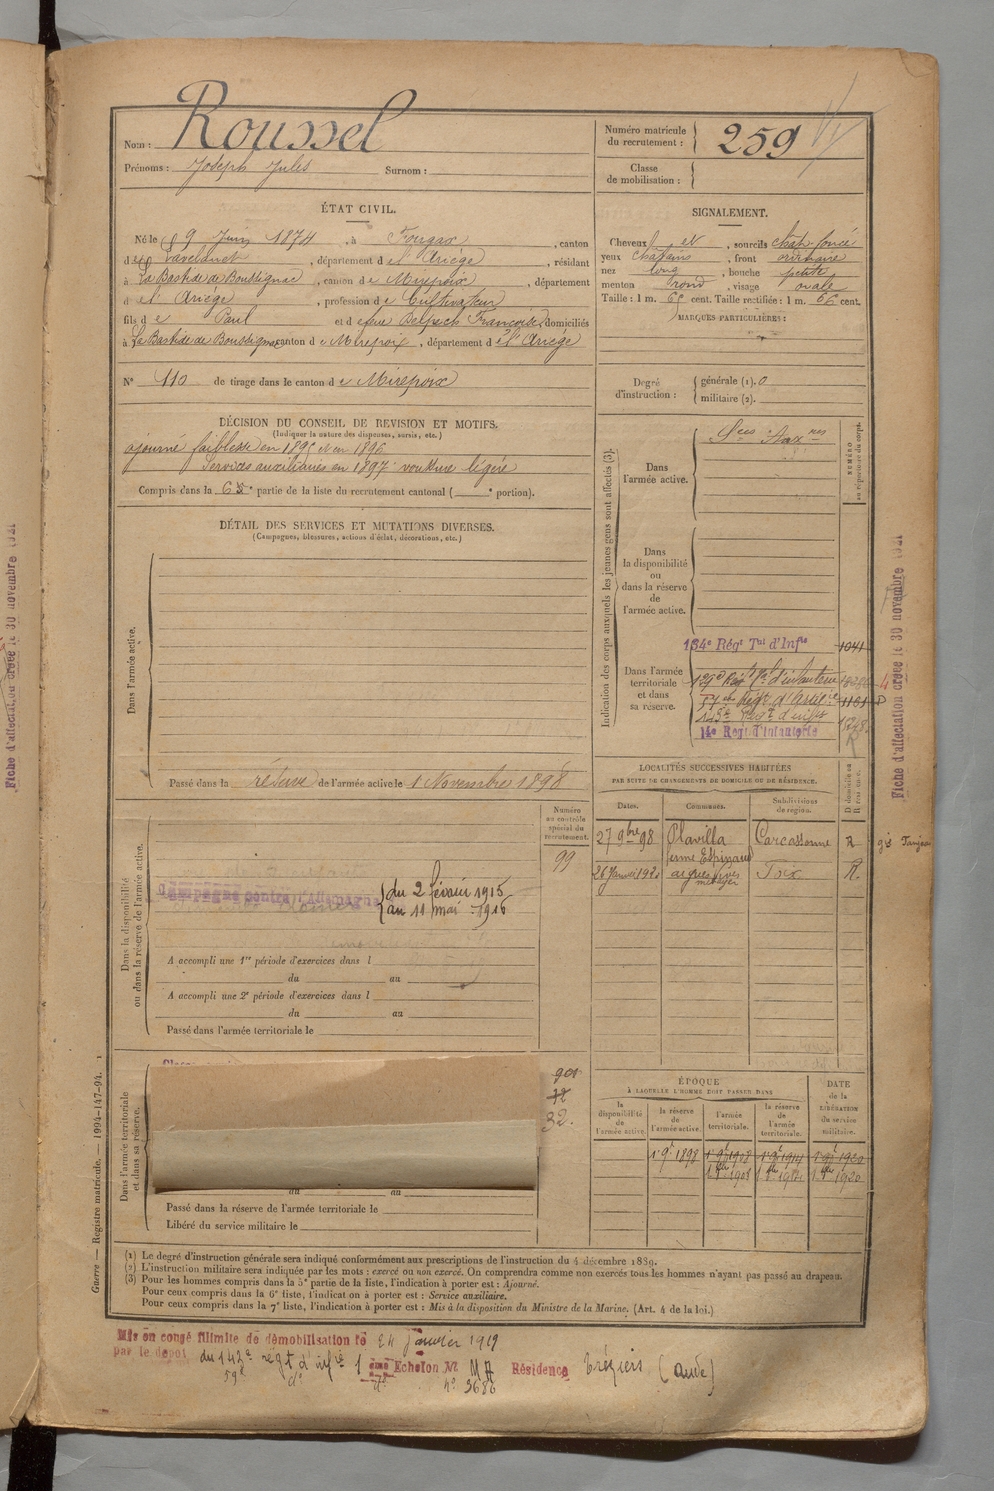 Nom : Roussel
Prénoms : Joseph Jules Surnom :
Numéro matricule du recrutement : 259
Classe de mobilisation :
ÉTAT CIVIL.
Né le 9 Juin 1874, à Fougax, canton
de Lavelanet, département de l'Ariège, résidant
à La Bastide de Bousignac, canton de Mirepoix, département
de l'Ariège, profession de Cultivateur
fils de Paul et de feue Delpech Françoise, domiciliés
à La Bastide de Bousignac, canton de Mirepoix, département de l'Ariège
N° 110 de tirage dans le canton de Mirepoix
SIGNALEMENT.
Cheveux et, sourcils chât. foncé
yeux châtains, front ordinaire
nez long, bouche petite
menton rond, visage ovale
Taille : 1 m. 65 cent. Taille rectifiée : 1 m. 66 cent.
MARQUES PARTICULIÈRES :
Degré d'instruction : générale (1). 0
militaire (2).
DÉCISION DU CONSEIL DE REVISION ET MOTIFS.
(Indiquer la nature des dispenses, sursis, etc.)
ajourné faiblesse en 1895 et en 1896
Services auxiliaires en 1897 voussure légère
Compris dans la 6e partie de la liste du recrutement cantonal ( e portion).
DÉTAIL DES SERVICES ET MUTATIONS DIVERSES.
(Campagnes, blessures, actions d'éclat, décorations, etc.)
Dans l'armée active.
Passé dans la réserve de l'armée active le 1 Novembre 1898
Indication des corps auxquels les jeunes gens sont affectés (3).
NUMÉRO au répertoire du corps.
Dans l'armée active.
Sces Auxres
Dans la disponibilité ou dans la réserve de l'armée active.
Dans l'armée territoriale et dans sa réserve.
134e Régt Tal d'Infie 1041
139e Régt Tal d'infanterie
1181
143e Régt d'infie
14e Régt d'Infanterie
Fiche d'affectation créée le 30 novembre 1921
Fiche d'affectation créée le 30 novembre 1921
LOCALITÉS SUCCESSIVES HABITÉES
PAR SUITE DE CHANGEMENTS DE DOMICILE OU DE RÉSIDENCE.
Dates. Communes. Subdivisions de région. D domicile ou R résidence.
27 9bre 98 Plavilla Carcassonne R
ferme Espinaud
26 Janvier 192 aigues vives Foix R.
métayer
Numéro au contrôle spécial du recrutement.
99
Dans la disponibilité ou dans la réserve de l'armée active.
Campagne contre l'Allemagne du 2 février 1915
au 11 mai 1916
A accompli une 1re période d'exercices dans l
du au
A accompli une 2e période d'exercices dans l
du au
Passé dans l'armée territoriale le
Dans l'armée territoriale et dans sa réserve.
901
32.
du au
Passé dans la réserve de l'armée territoriale le
Libéré du service militaire le
ÉPOQUE
À LAQUELLE L'HOMME DOIT PASSER DANS
la disponibilité de l'armée active. la réserve de l'armée active. l'armée territoriale. la réserve de l'armée territoriale. DATE de la LIBÉRATION du service militaire.
1 9e 1898 1 9e 1908 1 9e 1914 1 9e 1920
1 1908 1 1914 1 1920
Guerre — Registre matricule. — 1994-147-94. 1
(1) Le degré d'instruction générale sera indiqué conformément aux prescriptions de l'instruction du 4 décembre 1889.
(2) L'instruction militaire sera indiquée par les mots : exercé ou non exercé. On comprendra comme non exercés tous les hommes n'ayant pas passé au drapeau.
(3) Pour les hommes compris dans la 5e partie de la liste, l'indication à porter est : Ajourné.
Pour ceux compris dans la 6e liste, l'indication à porter est : Service auxiliaire.
Pour ceux compris dans la 7e liste, l'indication à porter est : Mis à la disposition du Ministre de la Marine. (Art. 4 de la loi.)
Mis en congé illimité de démobilisation le 24 janvier 1919
par le dépôt du 142e régt d'infie 1 ème Echelon N° Résidence Tréziers (Aude)
59e do do n° 3686